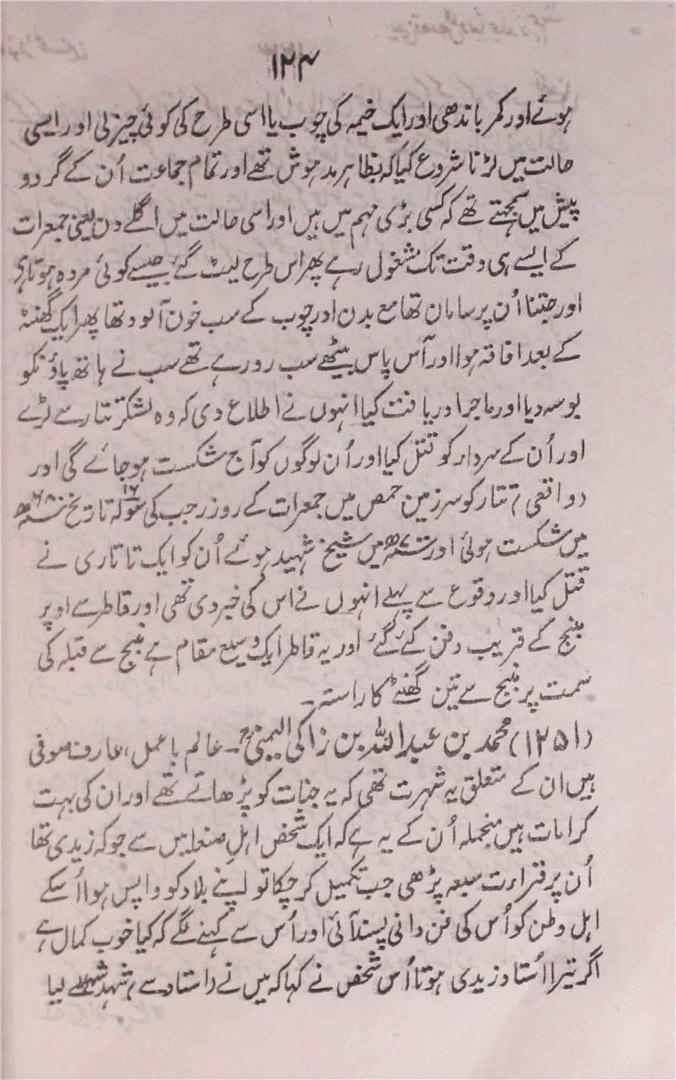 ۱۲۴
ہوئے اور کمر باندھی اور ایک خیمہ کی چوب یا اسی طرح کی کوئی چیز لی اور ایسی
حالت میں لڑنا شروع کیا کہ بظاہر مدہوش تھے اور تمام جماعت اُن کے گرد و
پیش میں سمجھتے تھے کہ کسی بڑی مہم میں ہیں اور اسی حالت میں اگلے دن یعنی جمعرات
کے ایسے ہی وقت تک مشغول رہے پھر اس طرح لیٹ گئے جیسے کوئی مردہ ہوتا ہے
اور جتنا اُن پر سامان تھا مع بدن اور چوب کے سب خون آلود تھا پھر ایک گھنٹہ
کے بعد افاقہ ہوا اور آس پاس بیٹھے سب رو رہے تھے سب نے ہاتھ پاؤنکو
بوسہ دیا اور ماجرا دریافت کیا انہوں نے اطلاع دی کہ وہ لشکر تتار سے لڑے
اور اُن کے سردار کو قتل کیا اور اُن لوگوں کو آج شکست ہو جائے گی اور
(واقعی) تتار کو سرزمین حمص میں جمعرات کے روز رجب کی ۱۶ تاریخ ۶۸۰ھ
میں شکست ہوئی اور میں شیخ شہید ہوئے اُن کو ایک تاتاری نے
قتل کیا اور وقوع سے پہلے انہوں نے اس کی خبر دی تھی اور قاطر سے اوپر
منبج کے قریب دفن کئے گئے اور یہ قاطر ایک وسیع مقام ہے منبج سے قبلہ کی
سمت پر منبج سے تین گھنٹے کا راستہ۔
(۱۲۵۱) محمد بن عبداللہ بن زاکی الیمنیؒ۔ عالم باعمل، عارف صوفی
ہیں ان کے متعلق یہ شہرت تھی کہ یہ جنات کو پڑھاتے تھے اور ان کی بہت
کرامات ہیں منجملہ اُن کے یہ ہے کہ ایک شخص اہل صنعا میں سے جو کہ زیدی تھا
اُن پر قراءت سبعہ پڑھی جب تکمیل کر چکا تو اپنے بلاد کو واپس ہوا اُسکے
اہل وطن کو اُس کی فن دانی پسند آئی اور اُس سے کہنے لگے کہ کیا خوب کمال ہے
اگر تیرا اُستاد زیدی ہوتا اُس شخص نے کہا کہ میں نے (استاد سے) شہد لیا